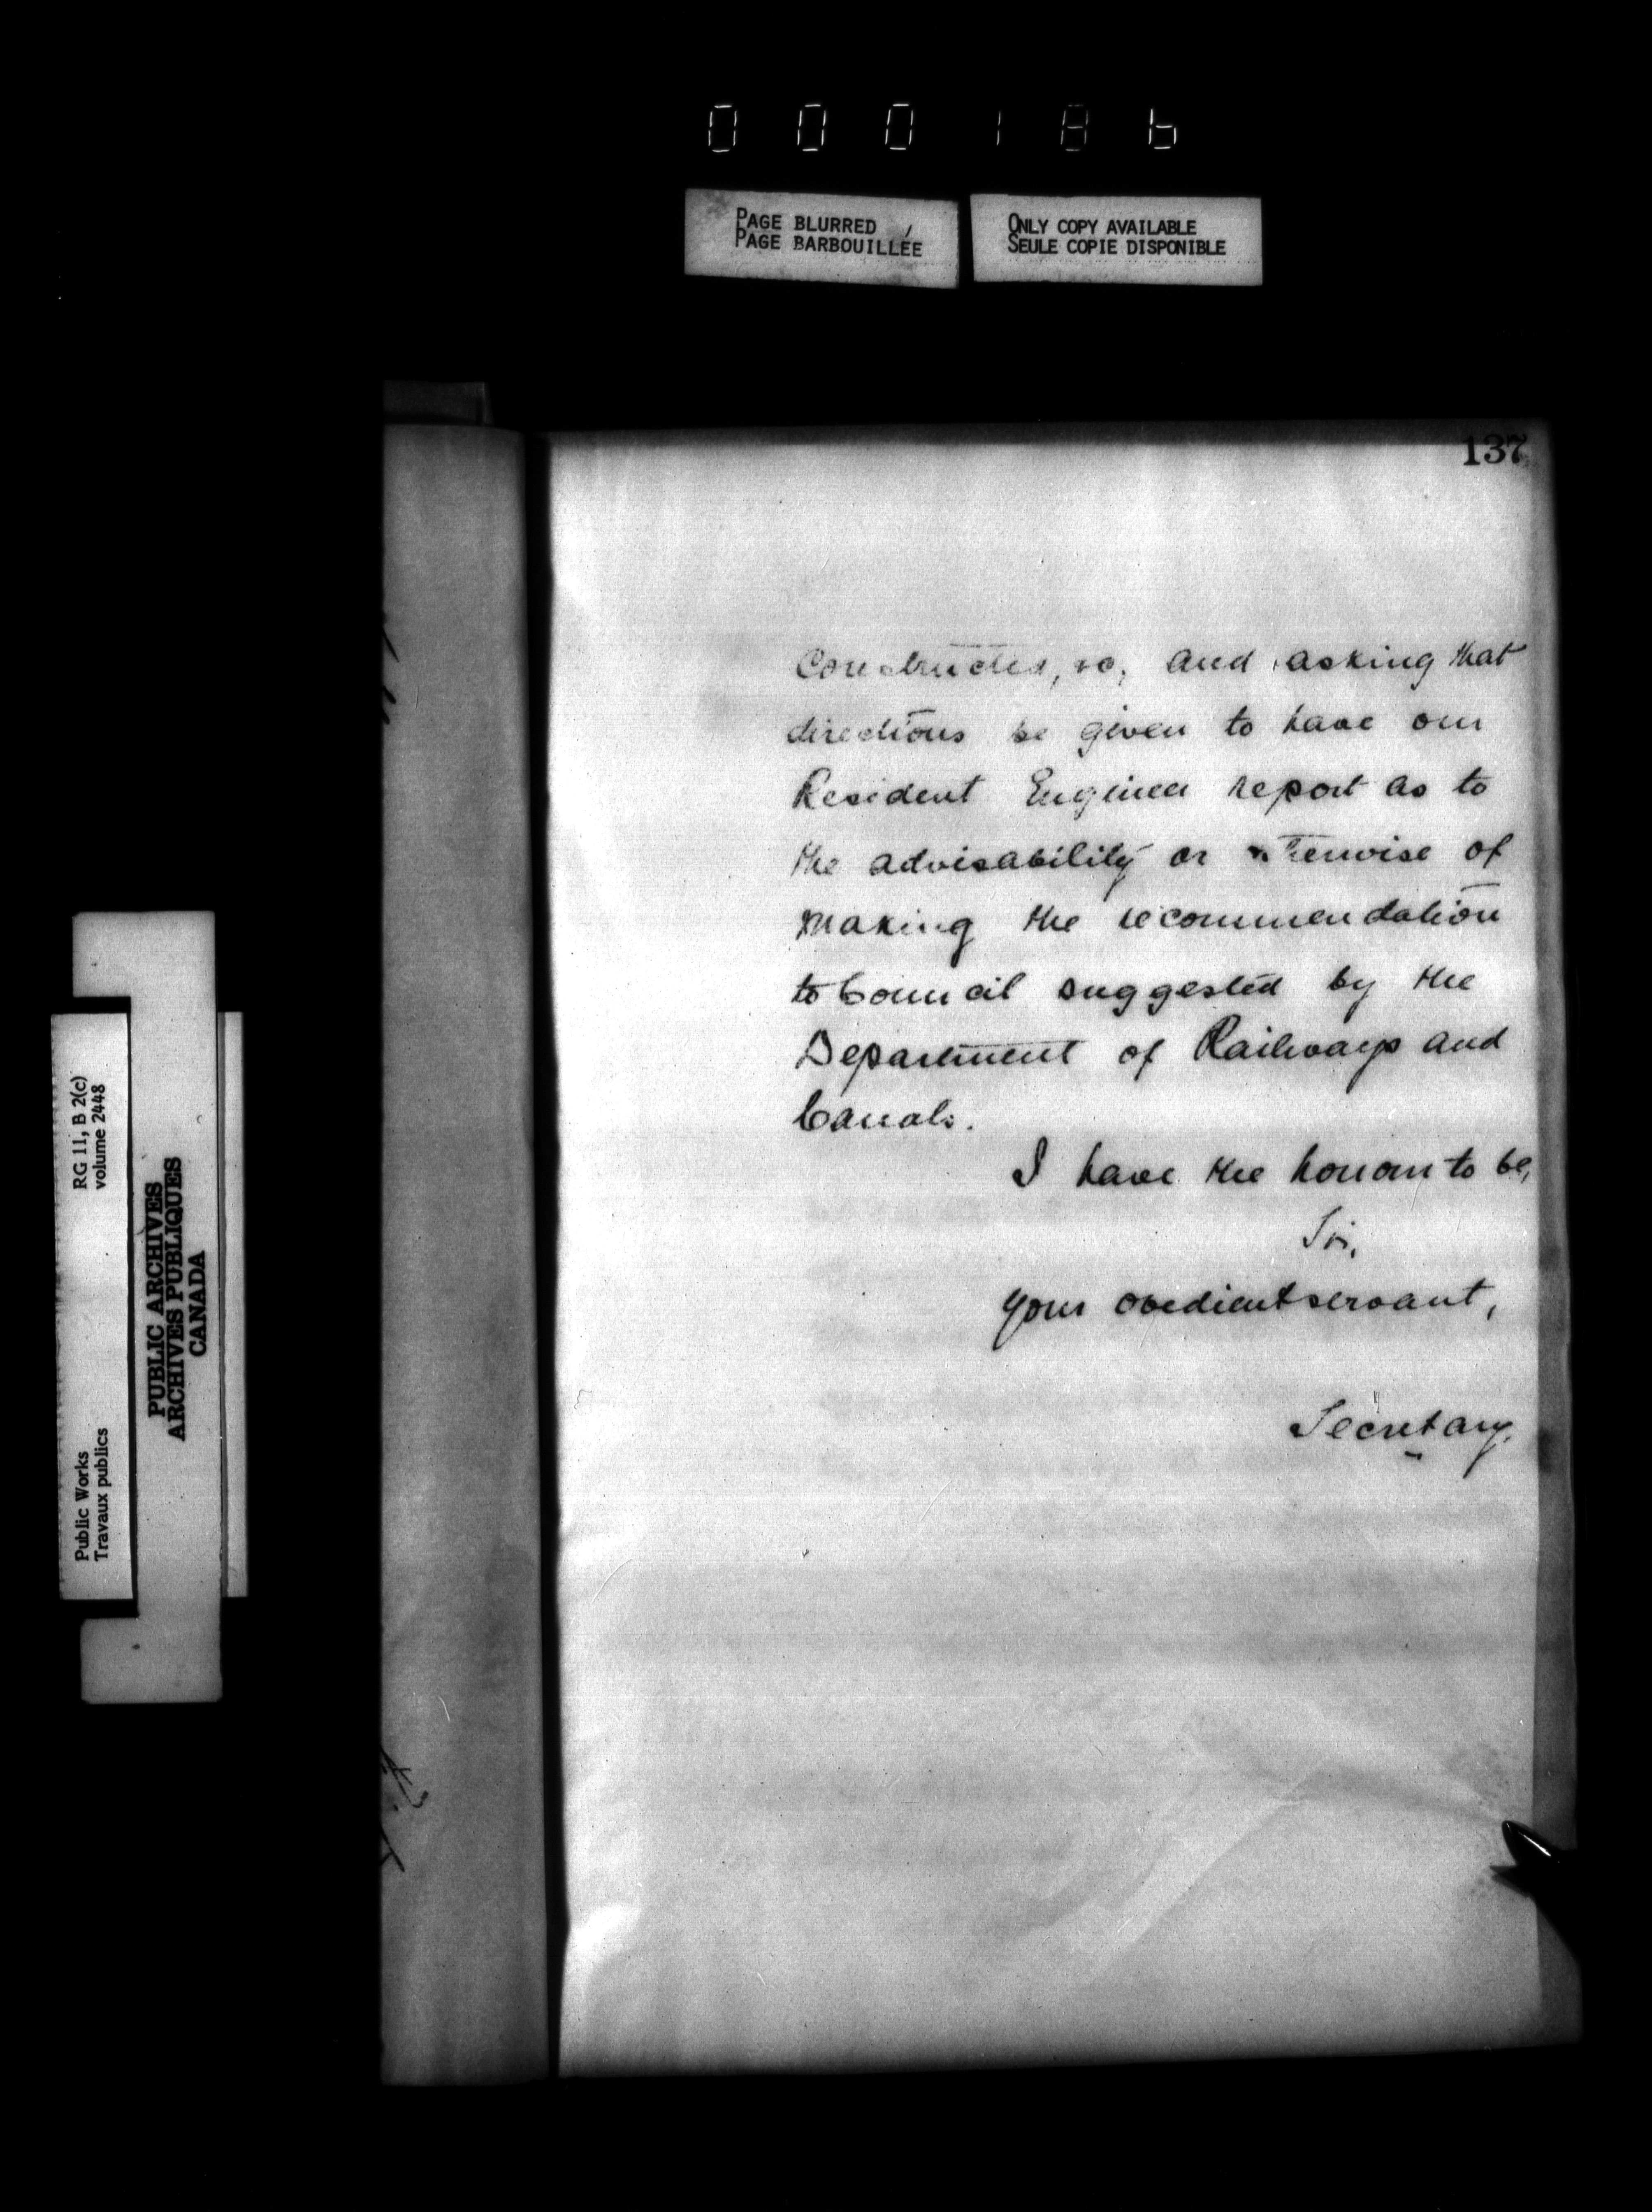 000186
PAGE BLURRED
PAGE BARBOUILLÉE
ONLY COPY AVAILABLE
SEULE COPIE DISPONIBLE
137
Constructed, &c, and asking that
directions be given to have our
Resident Engineer report as to
the advisability or otherwise of
making the recommendation
to Council suggested by the
Department of Railways and
Canals.
I have the honour to be,
Sir,
your obedient servant,
Secretary.
RG 11, B 2(c)
volume 2448
Public Works
Travaux publics
PUBLIC ARCHIVES
ARCHIVES PUBLIQUES
CANADA